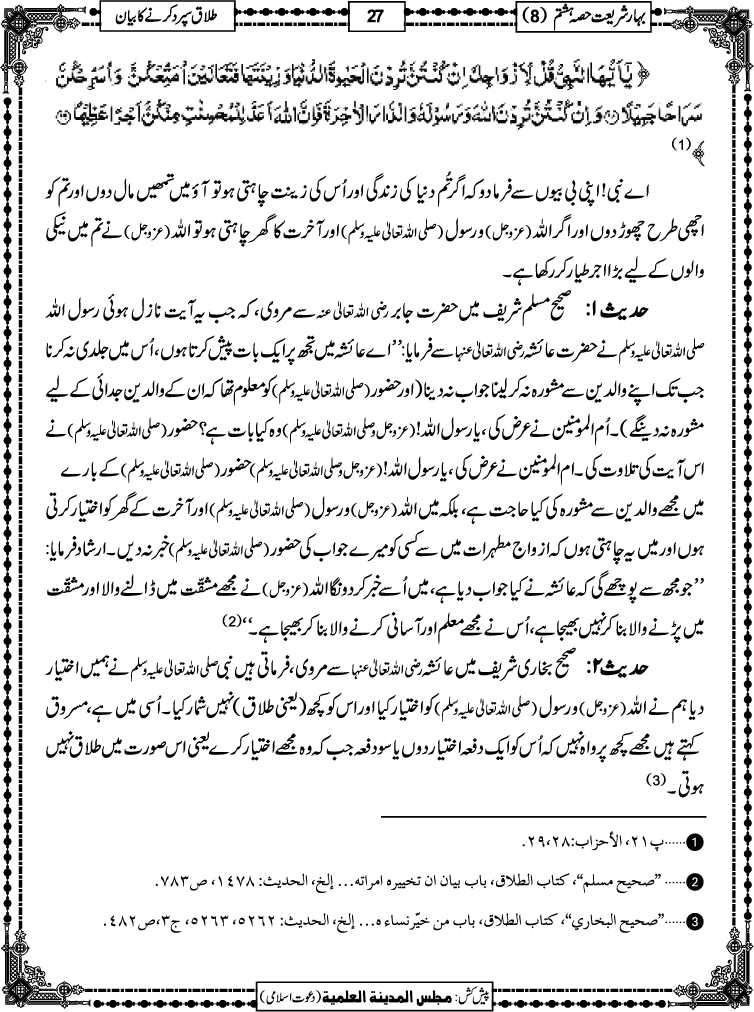 بہارِ شریعت حصہ ہشتم (8)
27
طلاق سپرد کرنے کا بیان
﴿ یٰۤاَیُّهَا النَّبِیُّ قُلْ لِّاَزْوَاجِكَ اِنْ كُنْتُنَّ تُرِدْنَ الْحَیٰوةَ الدُّنْیَا وَ زِیْنَتَهَا فَتَعَالَیْنَ اُمَتِّعْكُنَّ وَ اُسَرِّحْكُنَّ
سَرَاحًا جَمِیْلًا ﴿۲۸﴾ وَ اِنْ كُنْتُنَّ تُرِدْنَ اللّٰهَ وَ رَسُوْلَهٗ وَ الدَّارَ الْاٰخِرَةَ فَاِنَّ اللّٰهَ اَعَدَّ لِلْمُحْسِنٰتِ مِنْكُنَّ اَجْرًا عَظِیْمًا ﴿۲۹﴾
﴾ (1)
اے نبی! اپنی بی بیوں سے فرما دو کہ اگر تُم دنیا کی زندگی اور اُس کی زینت چاہتی ہو تو آؤ میں تمھیں مال دوں اور تم کو
اچھی طرح چھوڑ دوں اور اگر اللہ (عزوجل) و رسول (صلی اللہ تعالیٰ علیہ وسلم) اور آخرت کا گھر چاہتی ہو تو اللہ (عزوجل) نے تم میں نیکی
والوں کے لیے بڑا اجر طیار کر رکھا ہے۔
حدیث ۱: صحیح مسلم شریف میں حضرت جابر رضی اللہ تعالیٰ عنہ سے مروی، کہ جب یہ آیت نازل ہوئی رسول اللہ
صلی اللہ تعالیٰ علیہ وسلم نے حضرت عائشہ رضی اللہ تعالیٰ عنہا سے فرمایا: ’’اے عائشہ میں تجھ پر ایک بات پیش کرتا ہوں، اُس میں جلدی نہ کرنا
جب تک اپنے والدین سے مشورہ نہ کر لینا جواب نہ دینا (اور حضور (صلی اللہ تعالیٰ علیہ وسلم) کو معلوم تھا کہ ان کے والدین جدائی کے لیے
مشورہ نہ دینگے)۔ اُم المؤمنین نے عرض کی، یا رسول اللہ! (عزوجل وصلی اللہ تعالیٰ علیہ وسلم) وہ کیا بات ہے؟ حضور (صلی اللہ تعالیٰ علیہ وسلم) نے
اس آیت کی تلاوت کی۔ ام المؤمنین نے عرض کی، یا رسول اللہ! (عزوجل وصلی اللہ تعالیٰ علیہ وسلم) حضور (صلی اللہ تعالیٰ علیہ وسلم) کے بارے
میں مجھے والدین سے مشورہ کی کیا حاجت ہے، بلکہ میں اللہ (عزوجل) و رسول (صلی اللہ تعالیٰ علیہ وسلم) اور آخرت کے گھر کو اختیار کرتی
ہوں اور میں یہ چاہتی ہوں کہ ازواج مطہرات میں سے کسی کو میرے جواب کی حضور (صلی اللہ تعالیٰ علیہ وسلم) خبر نہ دیں۔ ارشاد فرمایا:
’’جو مجھ سے پوچھے گی کہ عائشہ نے کیا جواب دیا ہے، میں اُسے خبر کر دونگا اللہ (عزوجل) نے مجھے مشقت میں ڈالنے والا اور مشقت
میں پڑنے والا بنا کر نہیں بھیجا ہے، اُس نے مجھے معلم اور آسانی کرنے والا بنا کر بھیجا ہے۔‘‘ (2)
حدیث ۲: صحیح بخاری شریف میں عائشہ رضی اللہ تعالیٰ عنہا سے مروی، فرماتی ہیں نبی صلی اللہ تعالیٰ علیہ وسلم نے ہمیں اختیار
دیا ہم نے اللہ (عزوجل) و رسول (صلی اللہ تعالیٰ علیہ وسلم) کو اختیار کیا اور اس کو کچھ (یعنی طلاق) نہیں شمار کیا۔ اُسی میں ہے، مسروق
کہتے ہیں مجھے کچھ پرواہ نہیں کہ اُس کو ایک دفعہ اختیار دوں یا سو دفعہ جب کہ وہ مجھے اختیار کرے یعنی اس صورت میں طلاق نہیں
ہوتی۔ (3)
1 ......پ۲۱، الأحزاب:۲۸،۲۹.
2 ......"صحیح مسلم"، کتاب الطلاق، باب بیان ان تخییرہ امراتہ... إلخ، الحدیث: ۱۴۷۸، ص۷۸۳.
3 ......"صحیح البخاري"، کتاب الطلاق، باب من خیّر نساء ہ... إلخ، الحدیث: ۵۲۶۲، ۵۲۶۳، ج۳، ص۴۸۲.
پیش کش: مجلس المدینۃ العلمیۃ (دعوتِ اسلامی)